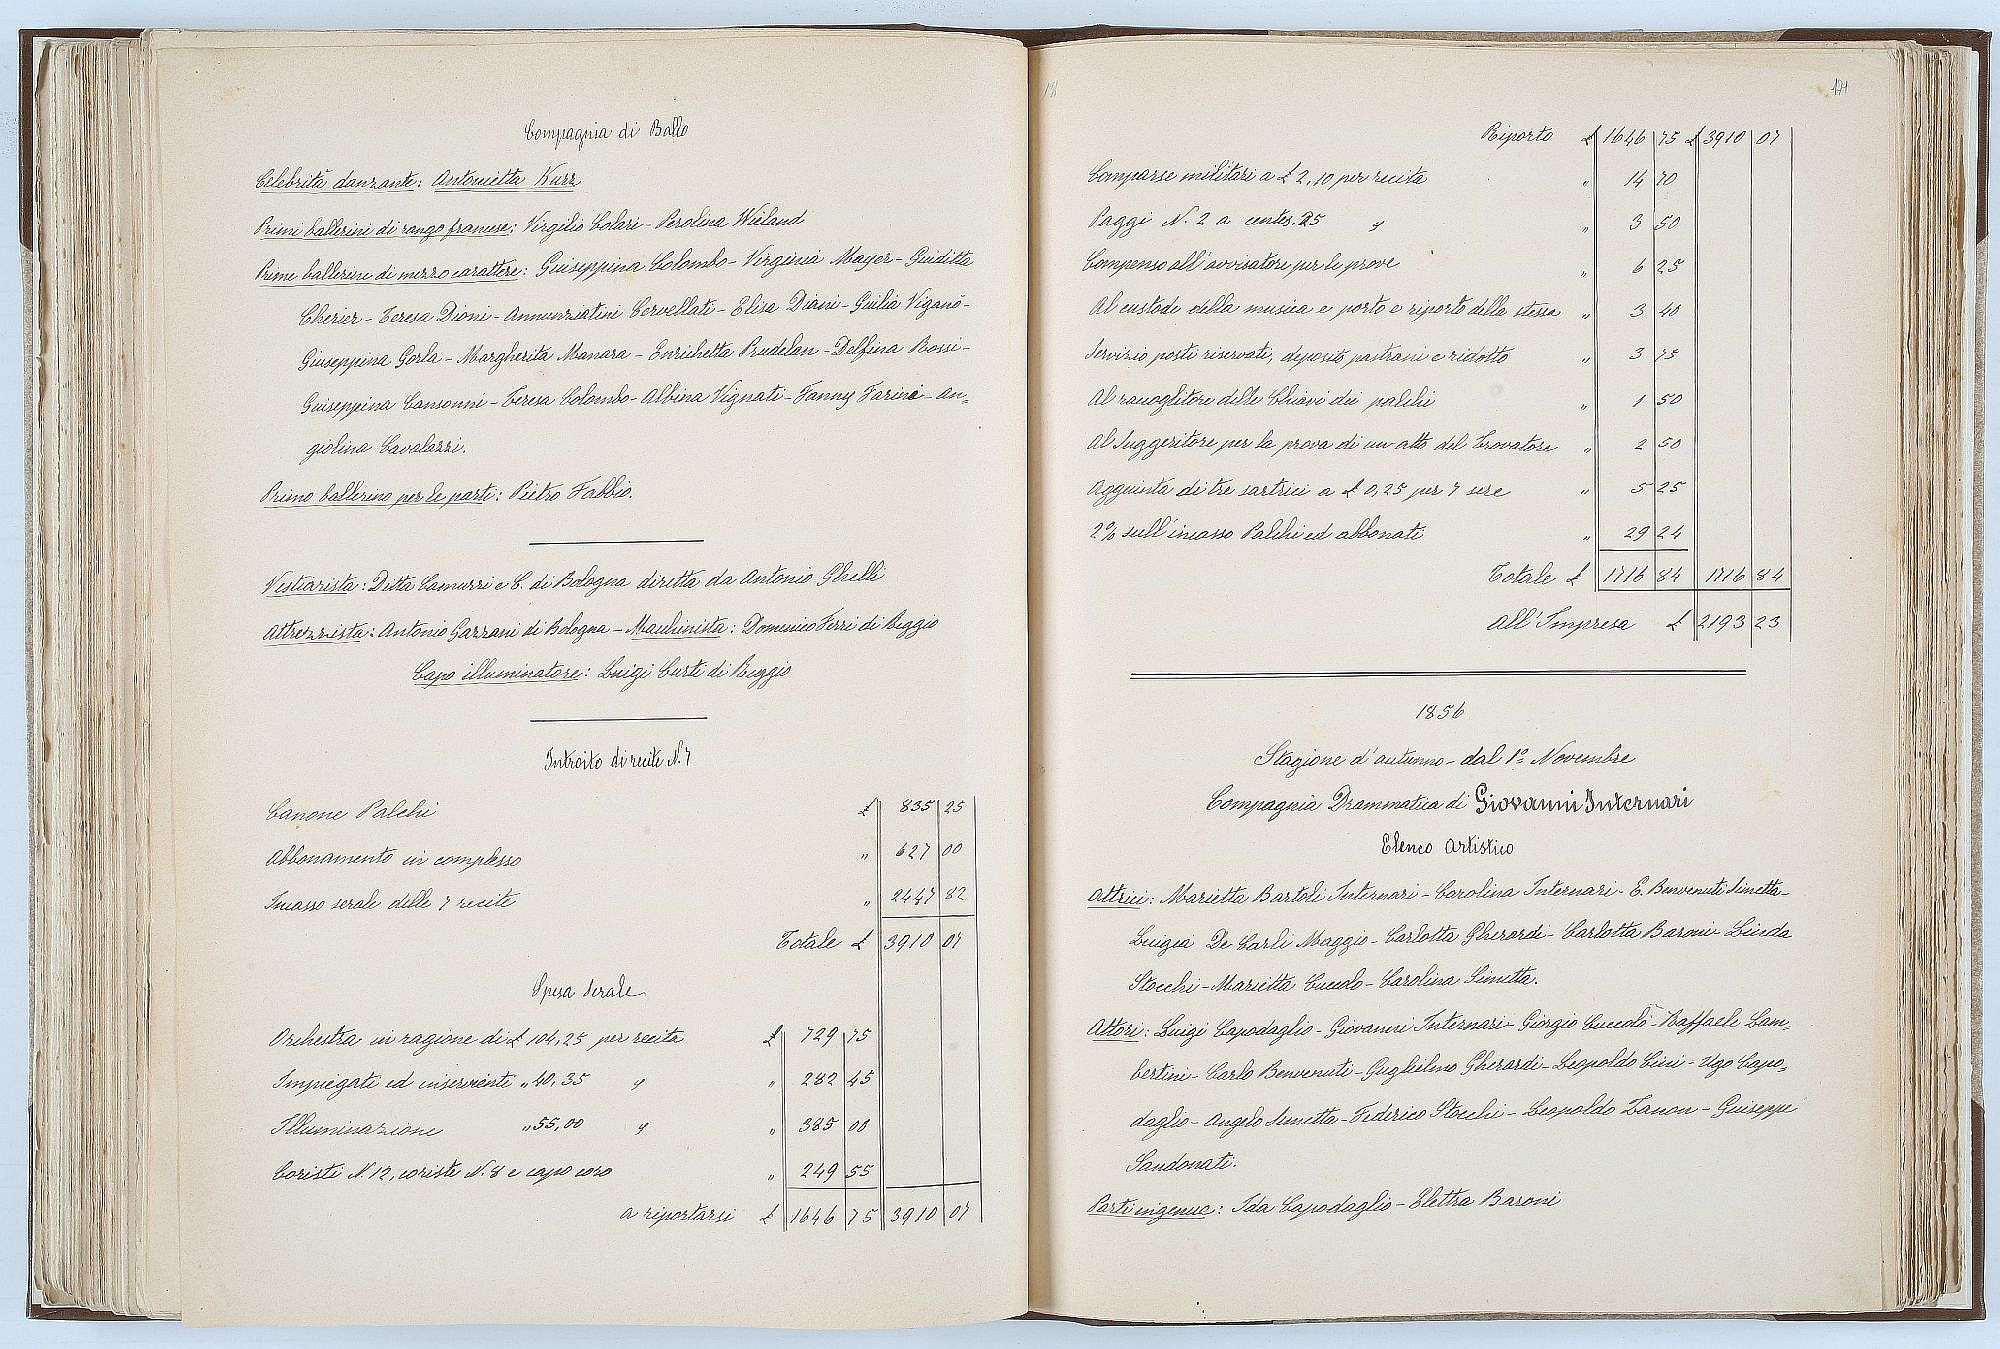 Compagnia di Ballo
Celebrità danzante: Antonietta Kurz
Primi ballerini di rango francese: Virgilio Calori - Perolina Wieland
Prime ballerine di mezzo carattere: Giuseppina Colombo - Virginia Mayer - Giuditta
Cherier - Teresa Dioni - Annunziatini Cervellati - Elisa Diani - Giulia Viganò -
Giuseppina Gorla - Margherita Manara - Enrichetta Prudelan - Delfina Rossi -
Giuseppina Cansonni - Teresa Colombo - Albina Vignati - Fanny Farini - An=
giolina Cavalazzi.
Primo ballerino per le parti: Pietro Fabbio.
Vestiarista: Ditta Camurri e C. di Bologna diretta da Antonio Ghelli
Attrezzista: Antonio Gazzani di Bologna - Machinista: Domenico Ferri di Reggio
Capo illuminatore: Luigi Curti di Reggio
Introito di recite N. 7
Canone Palchi £ 835 25
Abbonamento in complesso " 627 00
Incasso serale delle 7 recite " 2447 82
Totale £ 3910 07
Spesa Serale
Orchestra in ragione di £ 104,25 per recita £ 729 75
Impiegati ed inservienti " 40,35 " " 282 45
Illuminazione " 55,00 " " 385 00
Coristi N. 12, coriste N. 8 e capo coro " 249 55
a riportarsi £ 1646 75 3910 07
171
Riporto £ 1646 75 £ 3910 07
Comparse militari a £ 2,10 per recita " 14 70
Paggi N. 2 a centes. 25 " " 3 50
Compenso all'avvisatore per le prove " 6 25
Al custode della musica e porto e riporto della stessa " 3 40
Servizio posti riservati, deposito pastrani e ridotto " 3 75
Al raccoglitore delle Chiavi dei palchi " 1 50
Al Suggeritore per la prova di un atto del Trovatore " 2 50
Aggiunta di tre sartrici a £ 0,25 per 7 sere " 5 25
2% sull'incasso Palchi ed abbonati " 29 24
Totale £ 1716 84 1716 84
All'Impresa £ 2193 23
1856
Stagione d'autunno - dal 1º Novembre
Compagnia Drammatica di Giovanni Internari
Elenco Artistico
Attrici: Marietta Bartoli Internari - Carolina Internari - E. Benvenuti Simetta -
Luigia De Carli Maggio - Carlotta Gherardi - Carlotta Baroni - Linda
Stocchi - Marietta Cuccolo - Carolina Simetta.
Attori: Luigi Capodaglio - Giovanni Internari - Giorgio Cuccolo - Raffaele Lam=
bertini - Carlo Benvenuti - Guglielmo Gherardi - Leopoldo Cini - Ugo Capo=
daglio - Angelo Simetta - Federico Stocchi - Leopoldo Zanon - Giuseppe
Sandonati.
Parti ingenue: Ida Capodaglio - Elettra Baroni